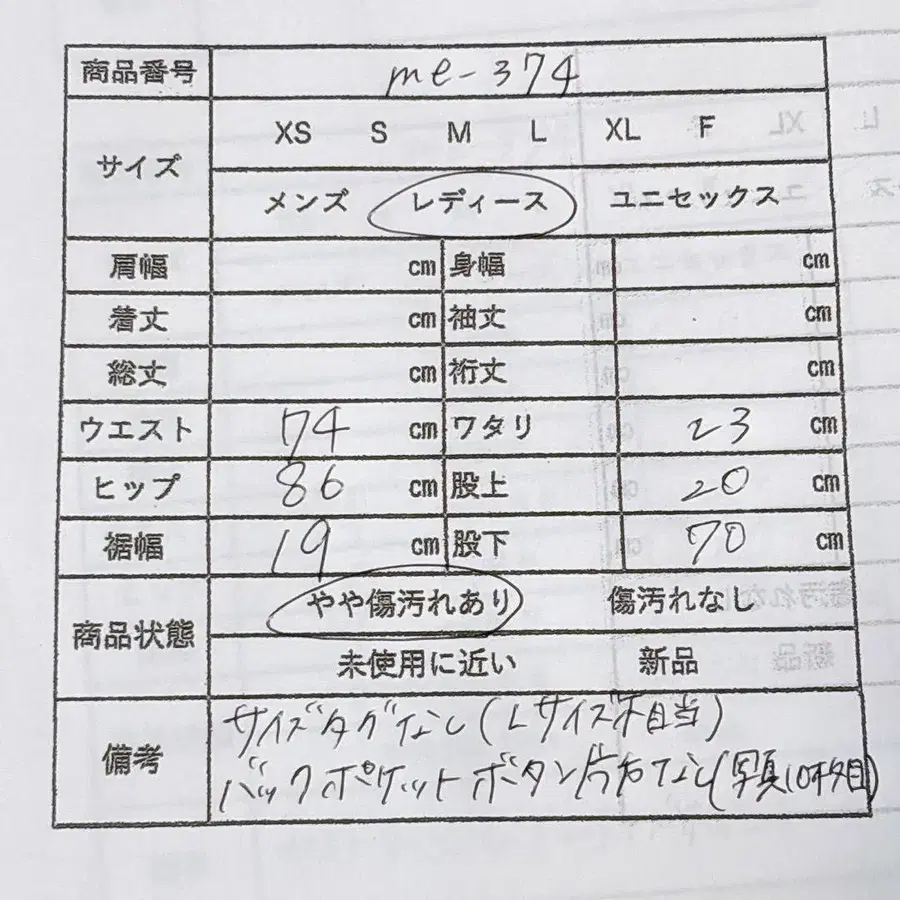 商品番号 me-374
サイズ XS S M L XL F
メンズ レディース ユニセックス
肩幅 cm 身幅 cm
着丈 cm 袖丈 cm
総丈 cm 裄丈 cm
ウエスト 74 cm ワタリ 23 cm
ヒップ 86 cm 股上 20 cm
裾幅 19 cm 股下 70 cm
商品状態 やや傷汚れあり 傷汚れなし
未使用に近い 新品
備考 サイズタグなし(Lサイズ相当)
バックポケットボタン片方なし(写真10枚目)